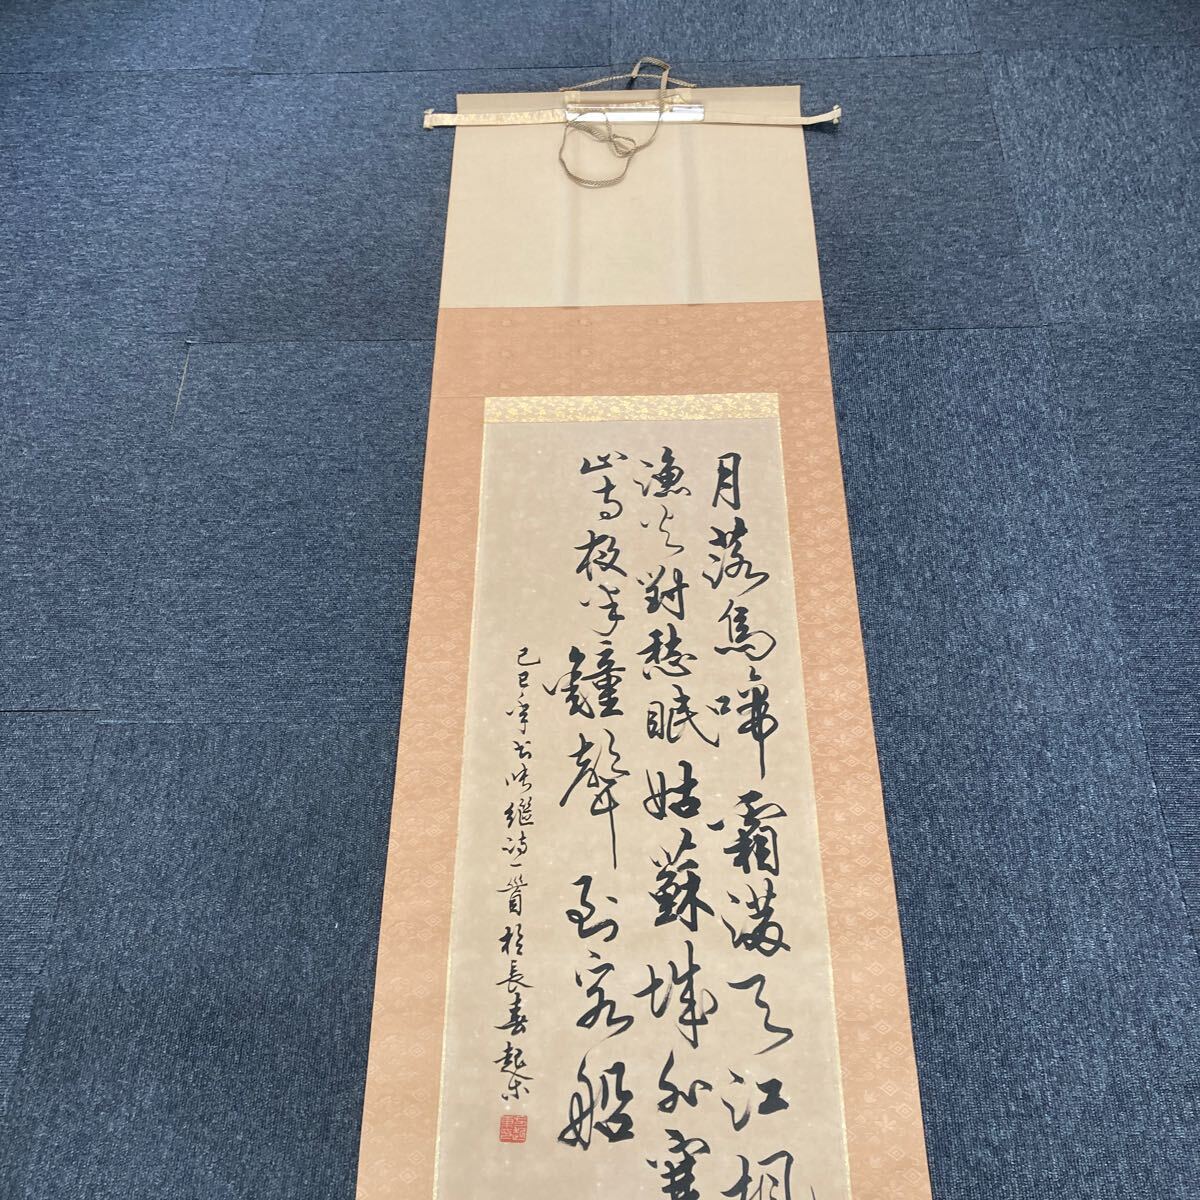 月落烏啼霜滿天江楓
漁火對愁眠姑蘇城外寒
山寺夜半鐘聲到客船
己巳年書張繼詩一首於長春起樂